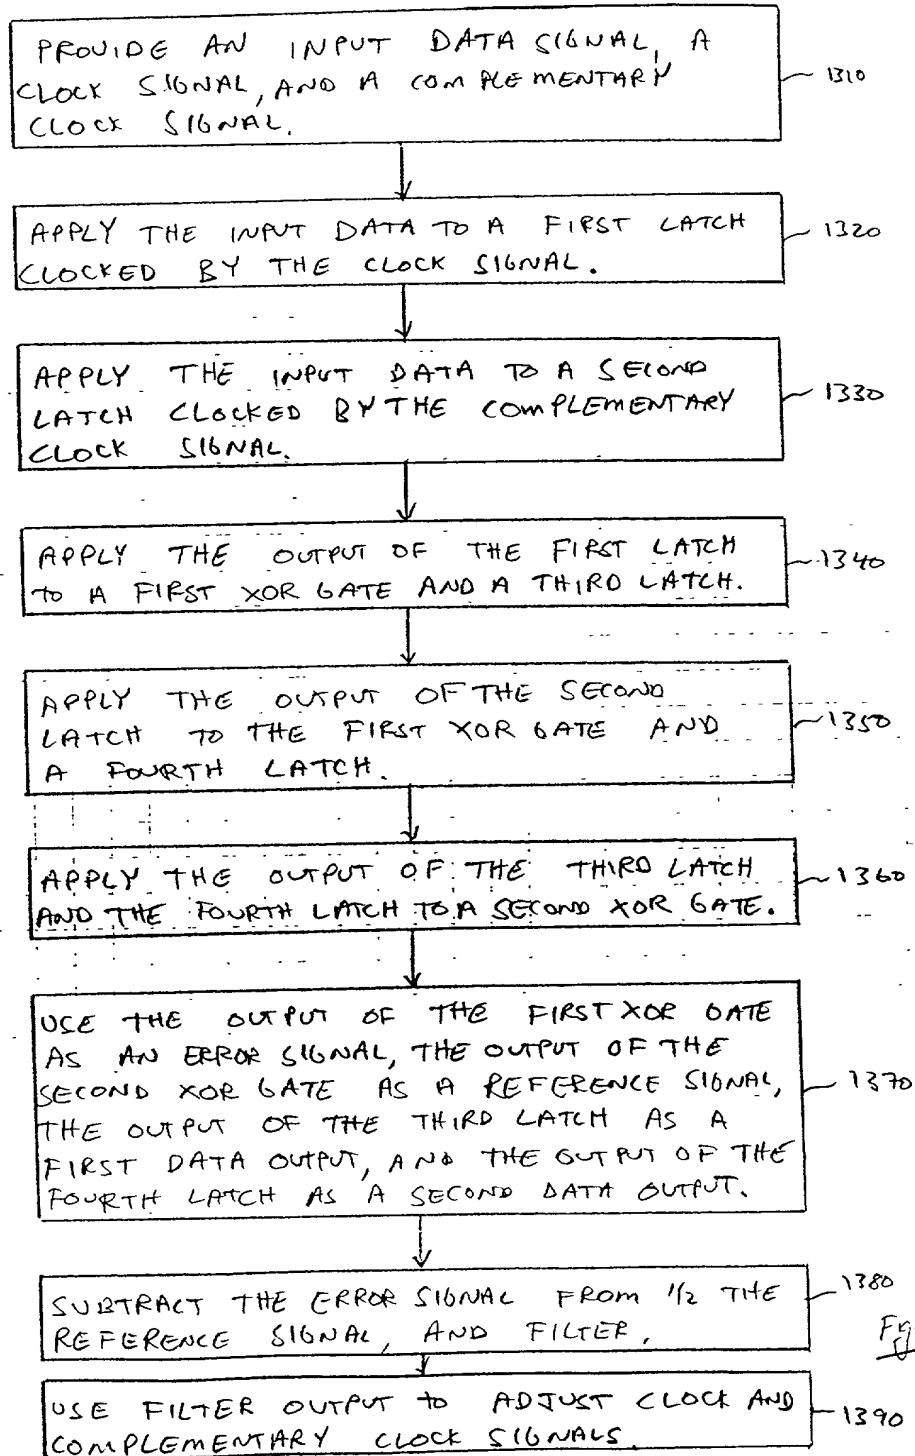 PROVIDE AN INPUT DATA SIGNAL, A
CLOCK SIGNAL, AND A COMPLEMENTARY
CLOCK SIGNAL.
1310
APPLY THE INPUT DATA TO A FIRST LATCH
CLOCKED BY THE CLOCK SIGNAL.
1320
APPLY THE INPUT DATA TO A SECOND
LATCH CLOCKED BY THE COMPLEMENTARY
CLOCK SIGNAL.
1330
APPLY THE OUTPUT OF THE FIRST LATCH
TO A FIRST XOR GATE AND A THIRD LATCH.
1340
APPLY THE OUTPUT OF THE SECOND
LATCH TO THE FIRST XOR GATE AND
A FOURTH LATCH.
1350
APPLY THE OUTPUT OF THE THIRD LATCH
AND THE FOURTH LATCH TO A SECOND XOR GATE.
1360
USE THE OUTPUT OF THE FIRST XOR GATE
AS AN ERROR SIGNAL, THE OUTPUT OF THE
SECOND XOR GATE AS A REFERENCE SIGNAL,
THE OUTPUT OF THE THIRD LATCH AS A
FIRST DATA OUTPUT, AND THE OUTPUT OF THE
FOURTH LATCH AS A SECOND DATA OUTPUT.
1370
SUBTRACT THE ERROR SIGNAL FROM 1/2 THE
REFERENCE SIGNAL, AND FILTER.
1380
Fig
USE FILTER OUTPUT TO ADJUST CLOCK AND
COMPLEMENTARY CLOCK SIGNALS.
1390